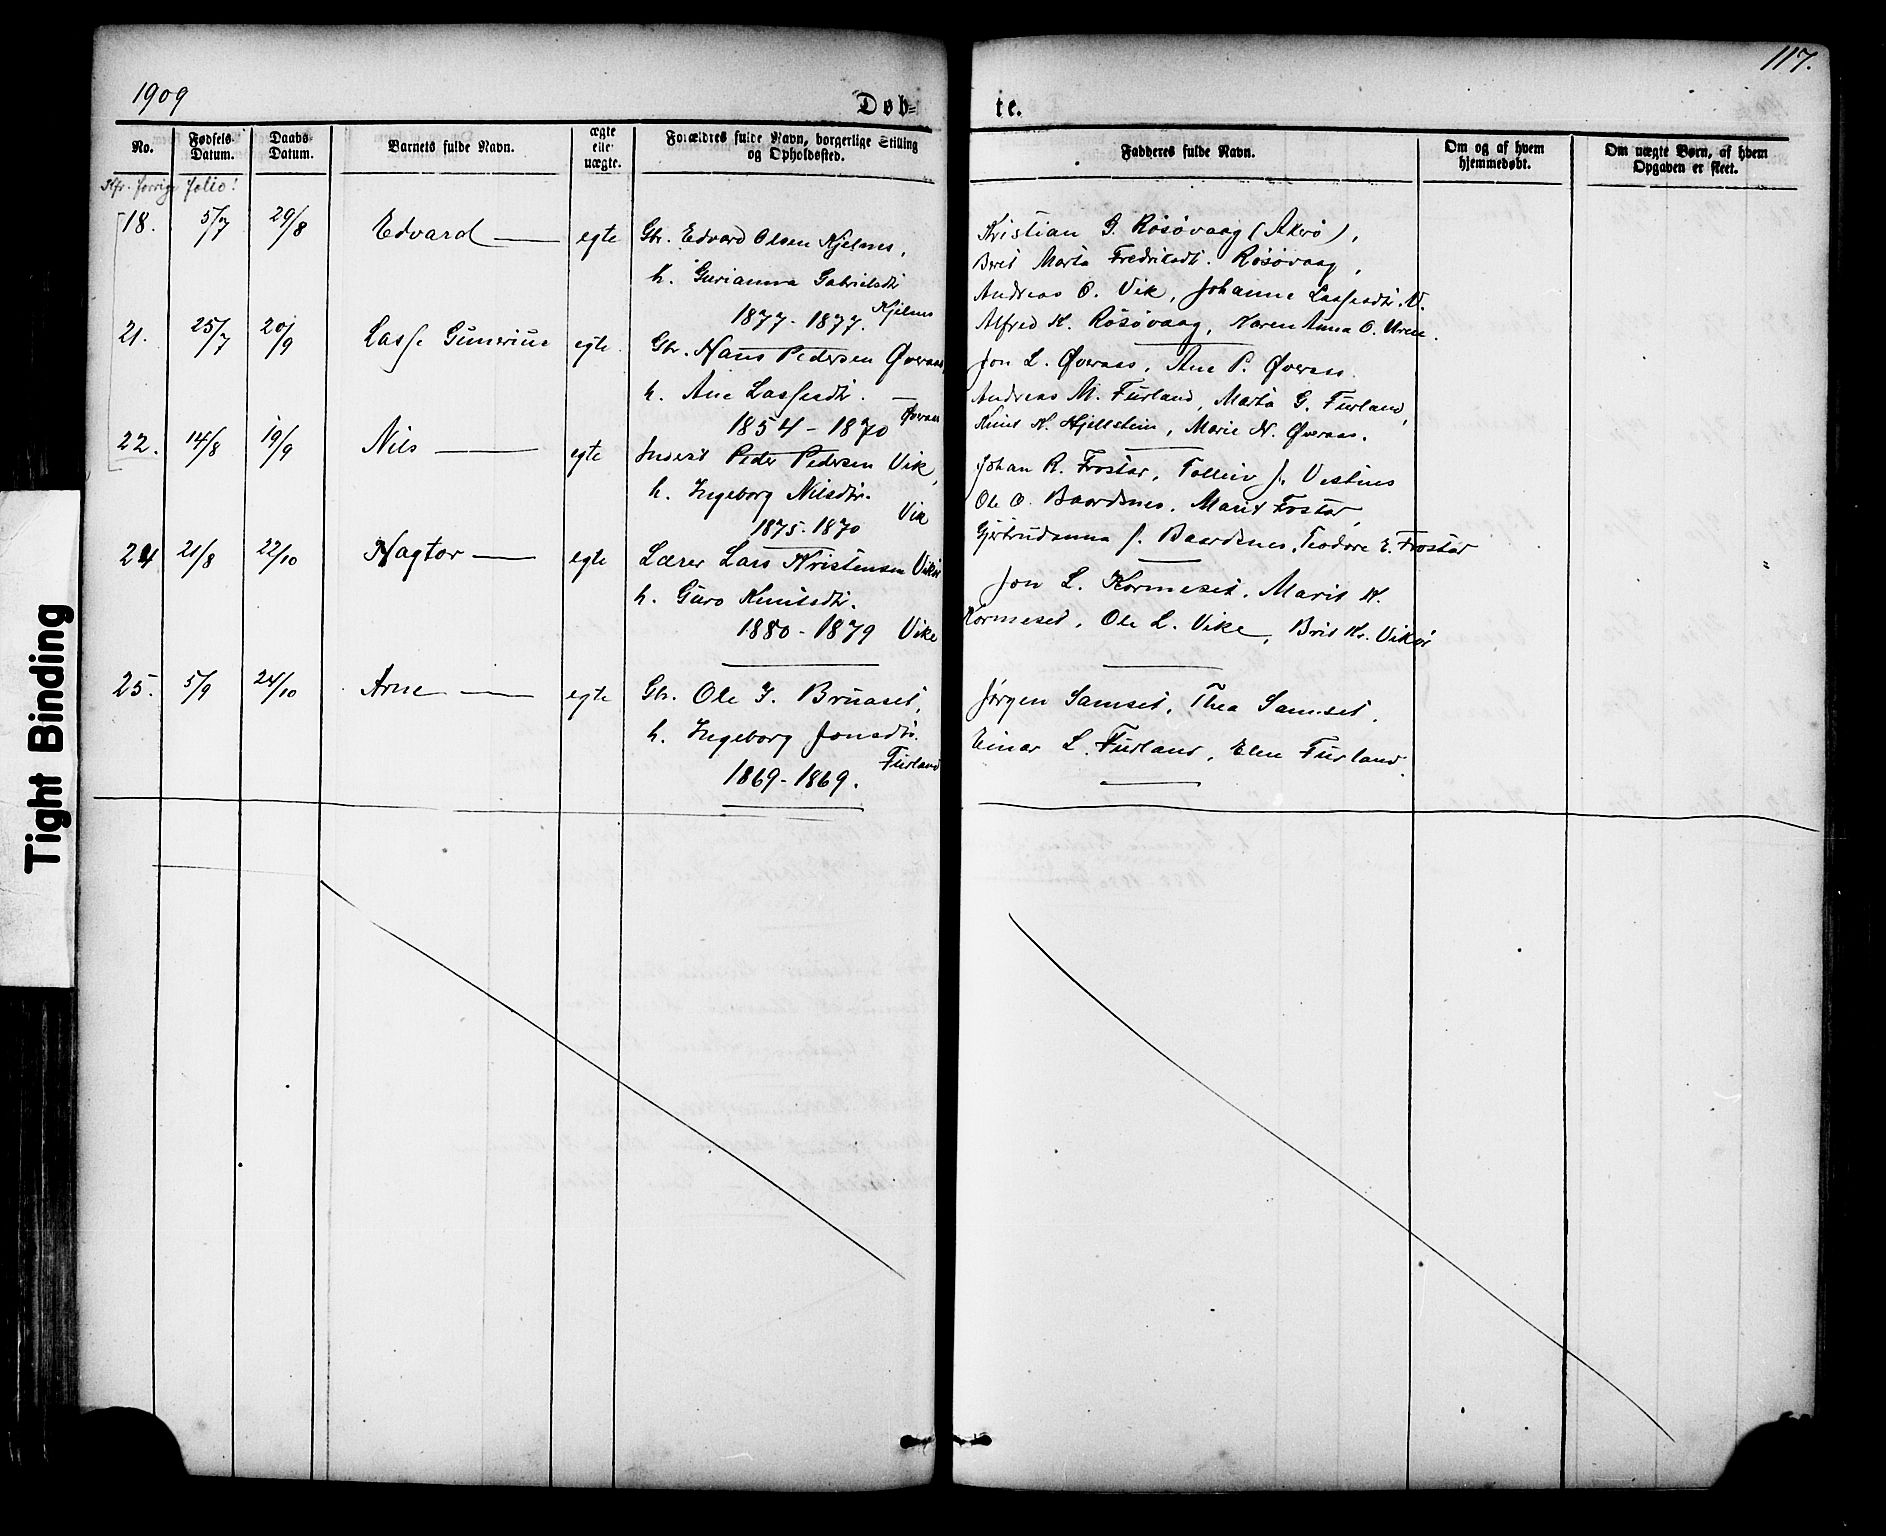 1909
Døb=
te.
117.
No.
Fødsels-Datum.
Daabs-Datum.
Barnets fulde Navn.
ægte eller uægte.
Forældres fulde Navn, borgerlige Stilling og Opholdssted.
Faddernes fulde Navn.
Om og af hvem hjemmedøbt.
Om uægte Børn, af hvem Opgaven er skeet.
Kfr. forrige folio!
18. 5/7 29/8 Edvard — egte Gbr. Edvard Olsen Kjelnes,
h. Gurianna Gabrielsdtr.
1877-1877. Kjelnes
Kristian G. Rösövaag (Akerö),
Berit Marta Fredriksdt. Rösövaag,
Andreas O. Vik, Johanne Lassesdtr. V.
Alfred K. Rösövaag, Karen Anna O.
21. 25/7 20/9 Lasse Gunerius egte. Gbr. Hans Pedersen Øveraas,
h. Ane Lassesdtr. —
1854-1870 Øveraas
Jon L. Øveraas, Ane P. Øveraas.
Andreas M. Furland, Marta G. Furland,
Knut K. Hjellstein, Marie N. Øveraas.
22. 14/8 19/9 Nils — egte Inderst Peder Pedersen Vik,
h. Ingeborg Nilsdtr.
1875-1870 Vik
Johan R. Frostar, Tolleiv J. Vestnes
Ole O. Baardsnes, Marit Frostar,
Gjertrudanna J. Baardsnes, Teodore E. Frostar
24 21/8 22/10 Hagtor — egte Lærer Lars Kristensen Vikör
h. Guro Knutsdtr.
1880-1879 Vike
Jon L. Kormeset, Marit K.
Kormeset, Ole L. Vike, Brit Kr. Vikör
25. 5/9 24/10 Arne — egte Gbr. Ole G. Bruaset,
h. Ingeborg Jonsdtr.
1869-1869. Furland
Jørgen Samset, Thea Samset,
Einar L. Furland, Elen Furland.
Tight Binding